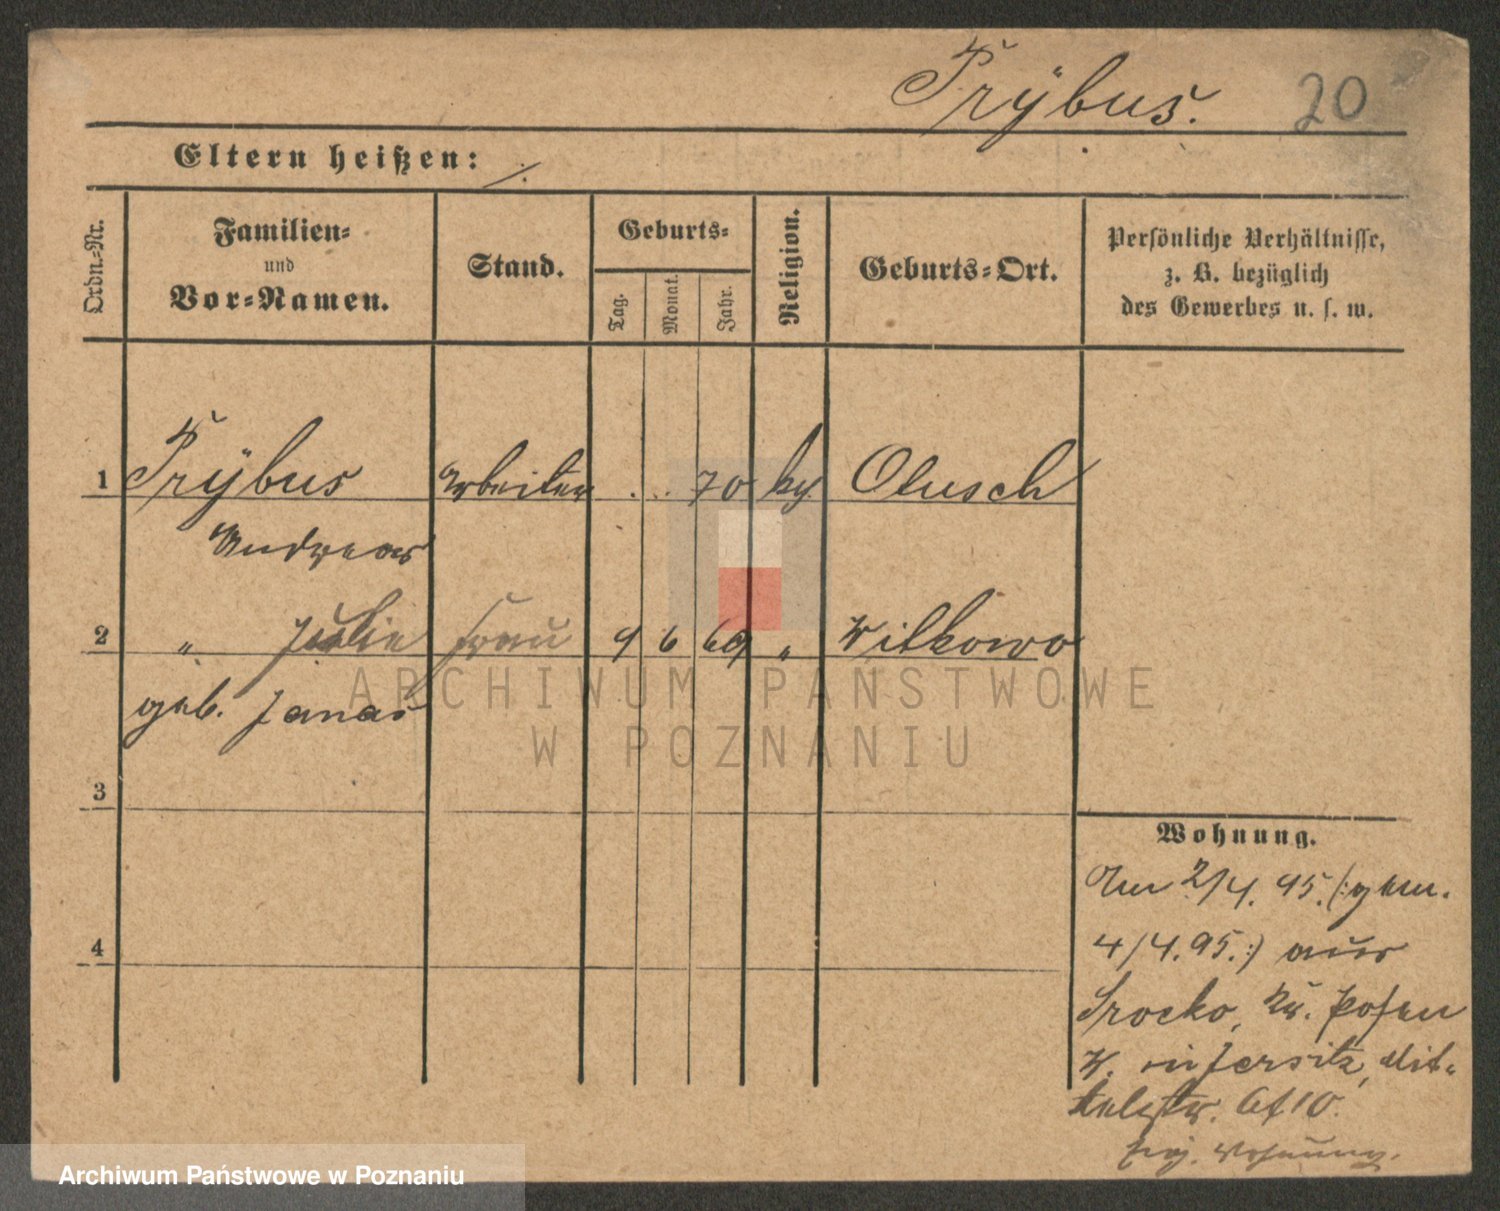 Trÿbus.
20
Eltern heißen: /.
Ordn.-Nr.
Familien-
und
Vor-Namen.
Stand.
Geburts-
Tag.
Monat.
Jahr.
Religion.
Geburts-Ort.
Persönliche Verhältnisse,
z. B. bezüglich
des Gewerbes u. s. w.
1 Trÿbus Arbeiter . .. 70 kth. Olusch
Andreas
2 " Julie Frau 9 6 69 " Witkowo
geb. Janas
ARCHIWUM PAŃSTWOWE
W POZNANIU
3
4
Wohnung.
Am 2/4. 95. (:gem.
4/4. 95.:) aus
Srocko, Kr. Posen
W. in Jersitz, Mit-
telstr. 10.
Wohnung.
Archiwum Państwowe w Poznaniu